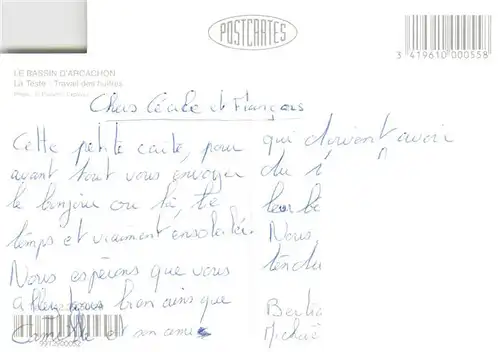 POSTCARTES
3 419610 000558
LE BASSIN D'ARCACHON
La Teste - Travail des huîtres
Chers Cécile et François
Cette petite carte, pour
avant tout vous envoyer
le bonjour ou là, le
temps et vraiment ensoleillé.
Nous espérons que vous
allez tous bien ainsi que
Camille et son amie
qui doivent avoir
du
leur
Nous
tendu